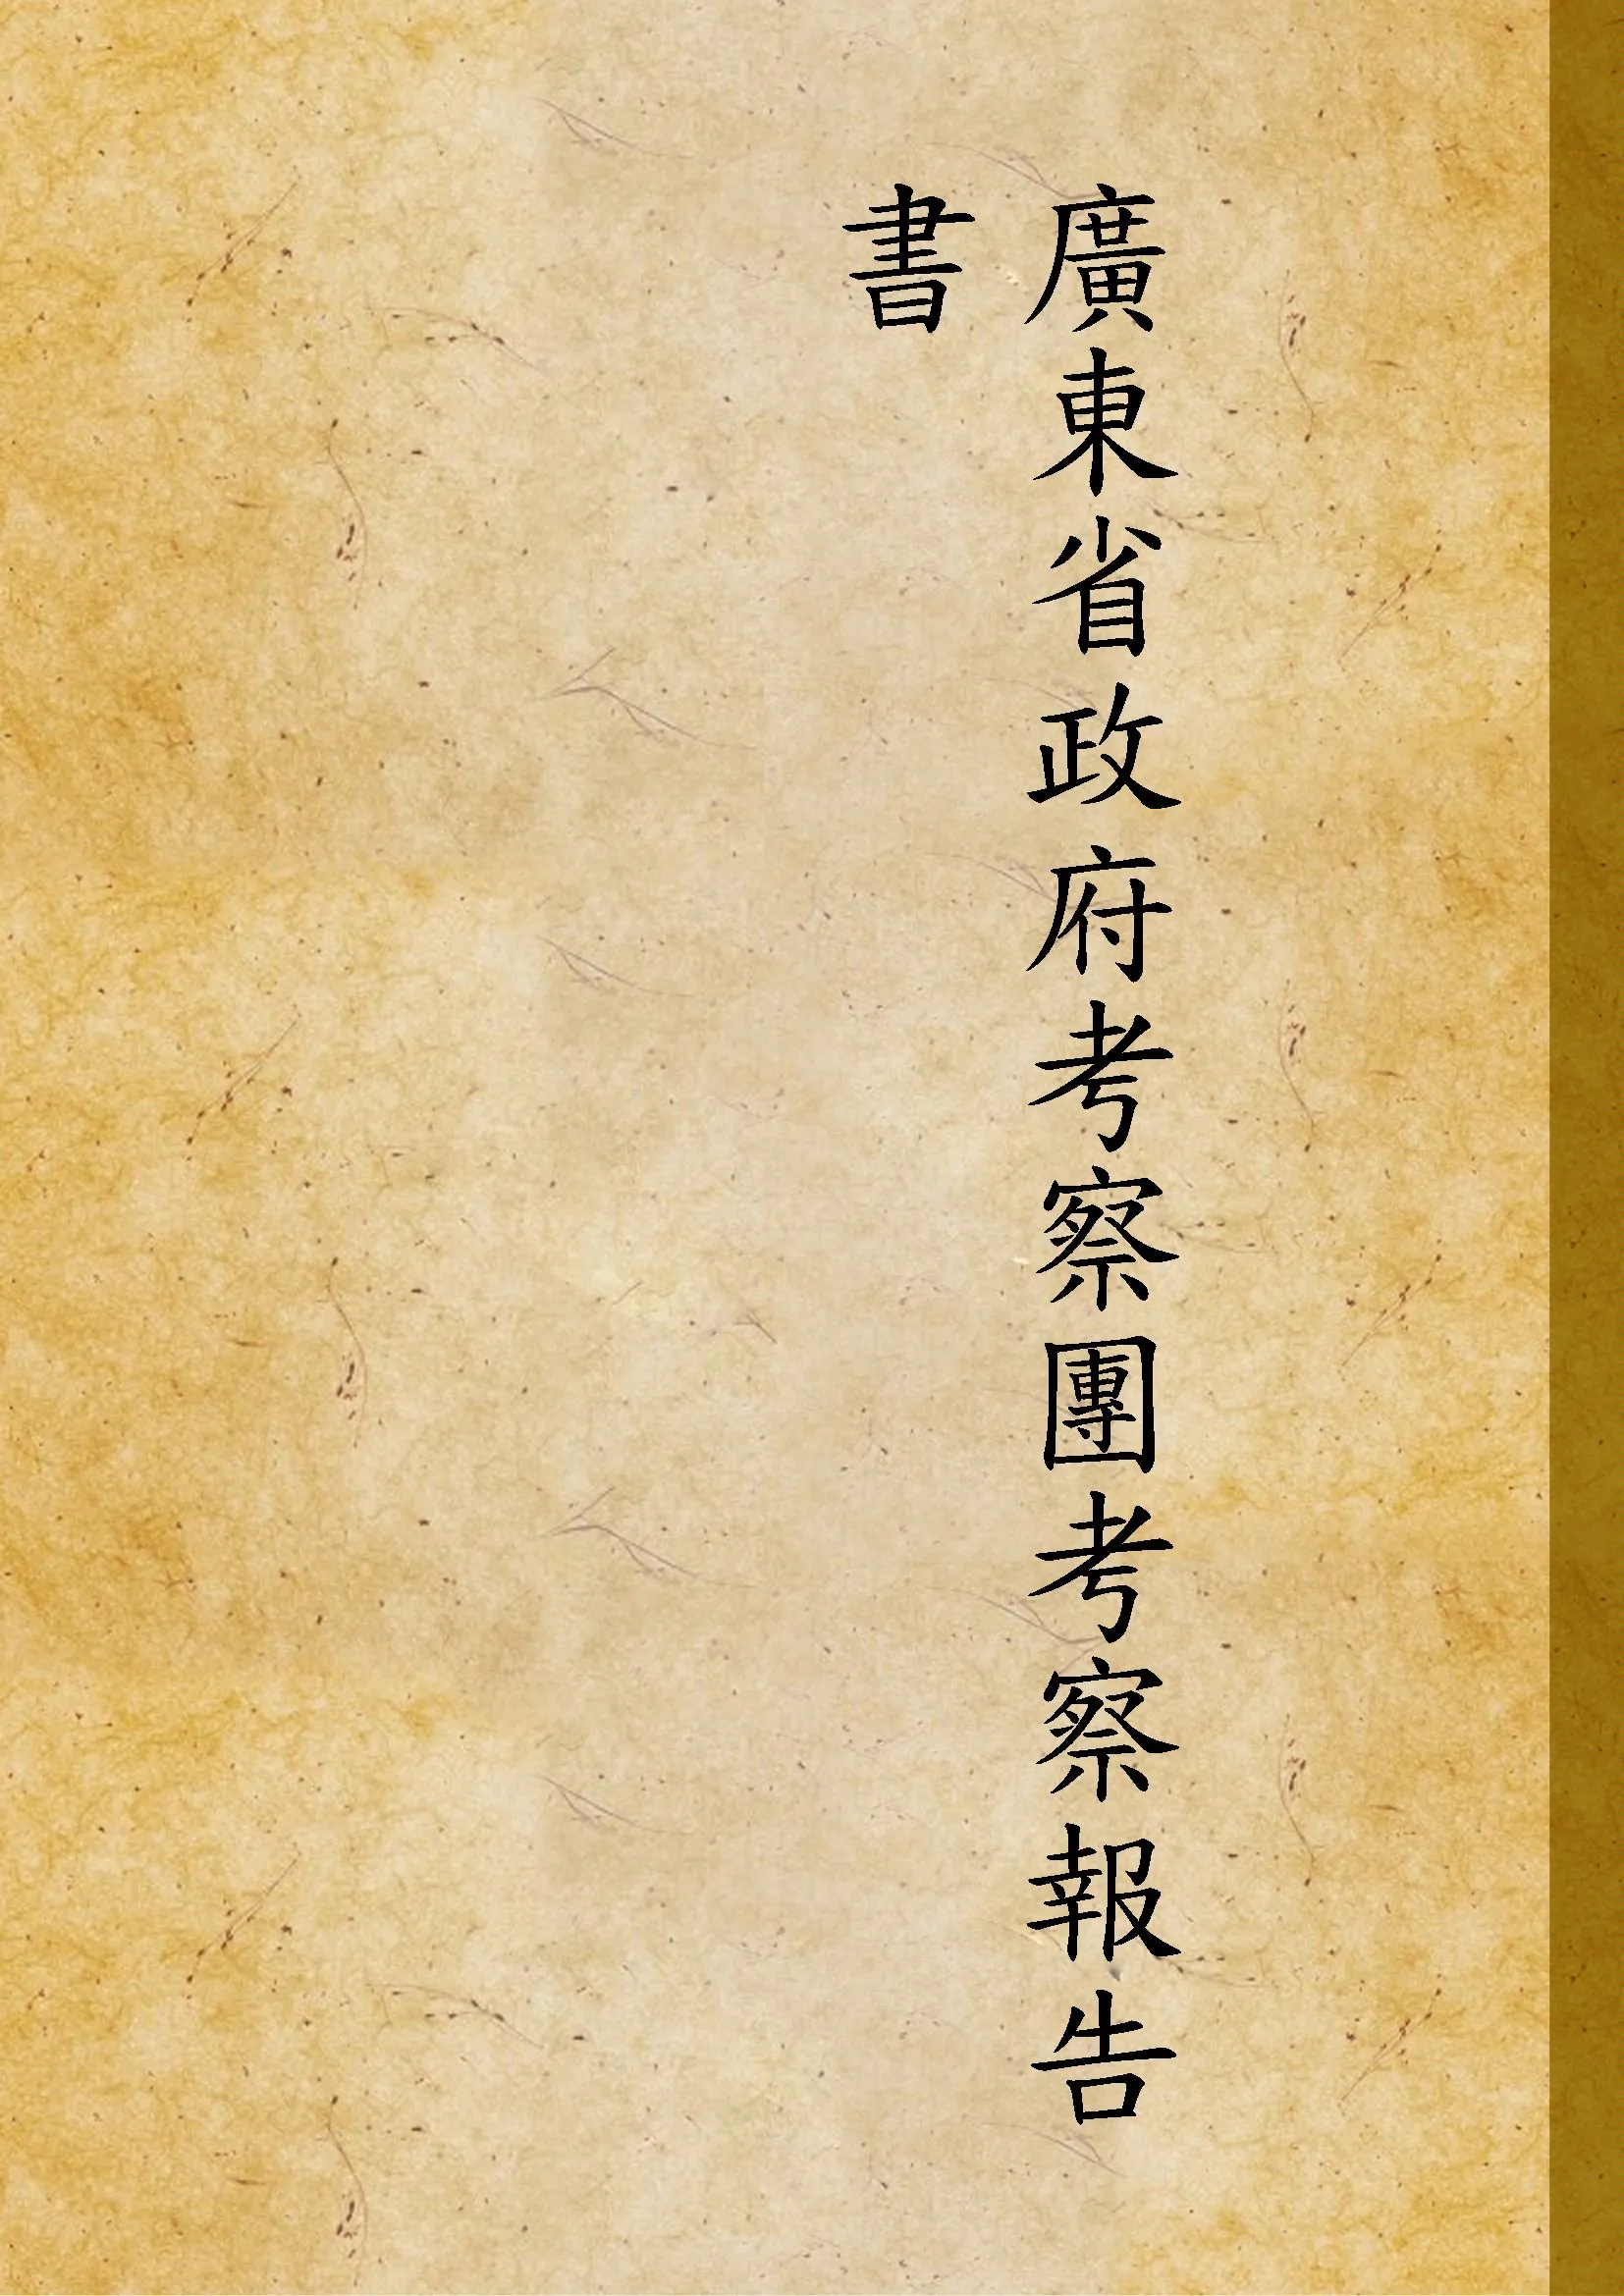 廣東省政府考察團考察報告
書